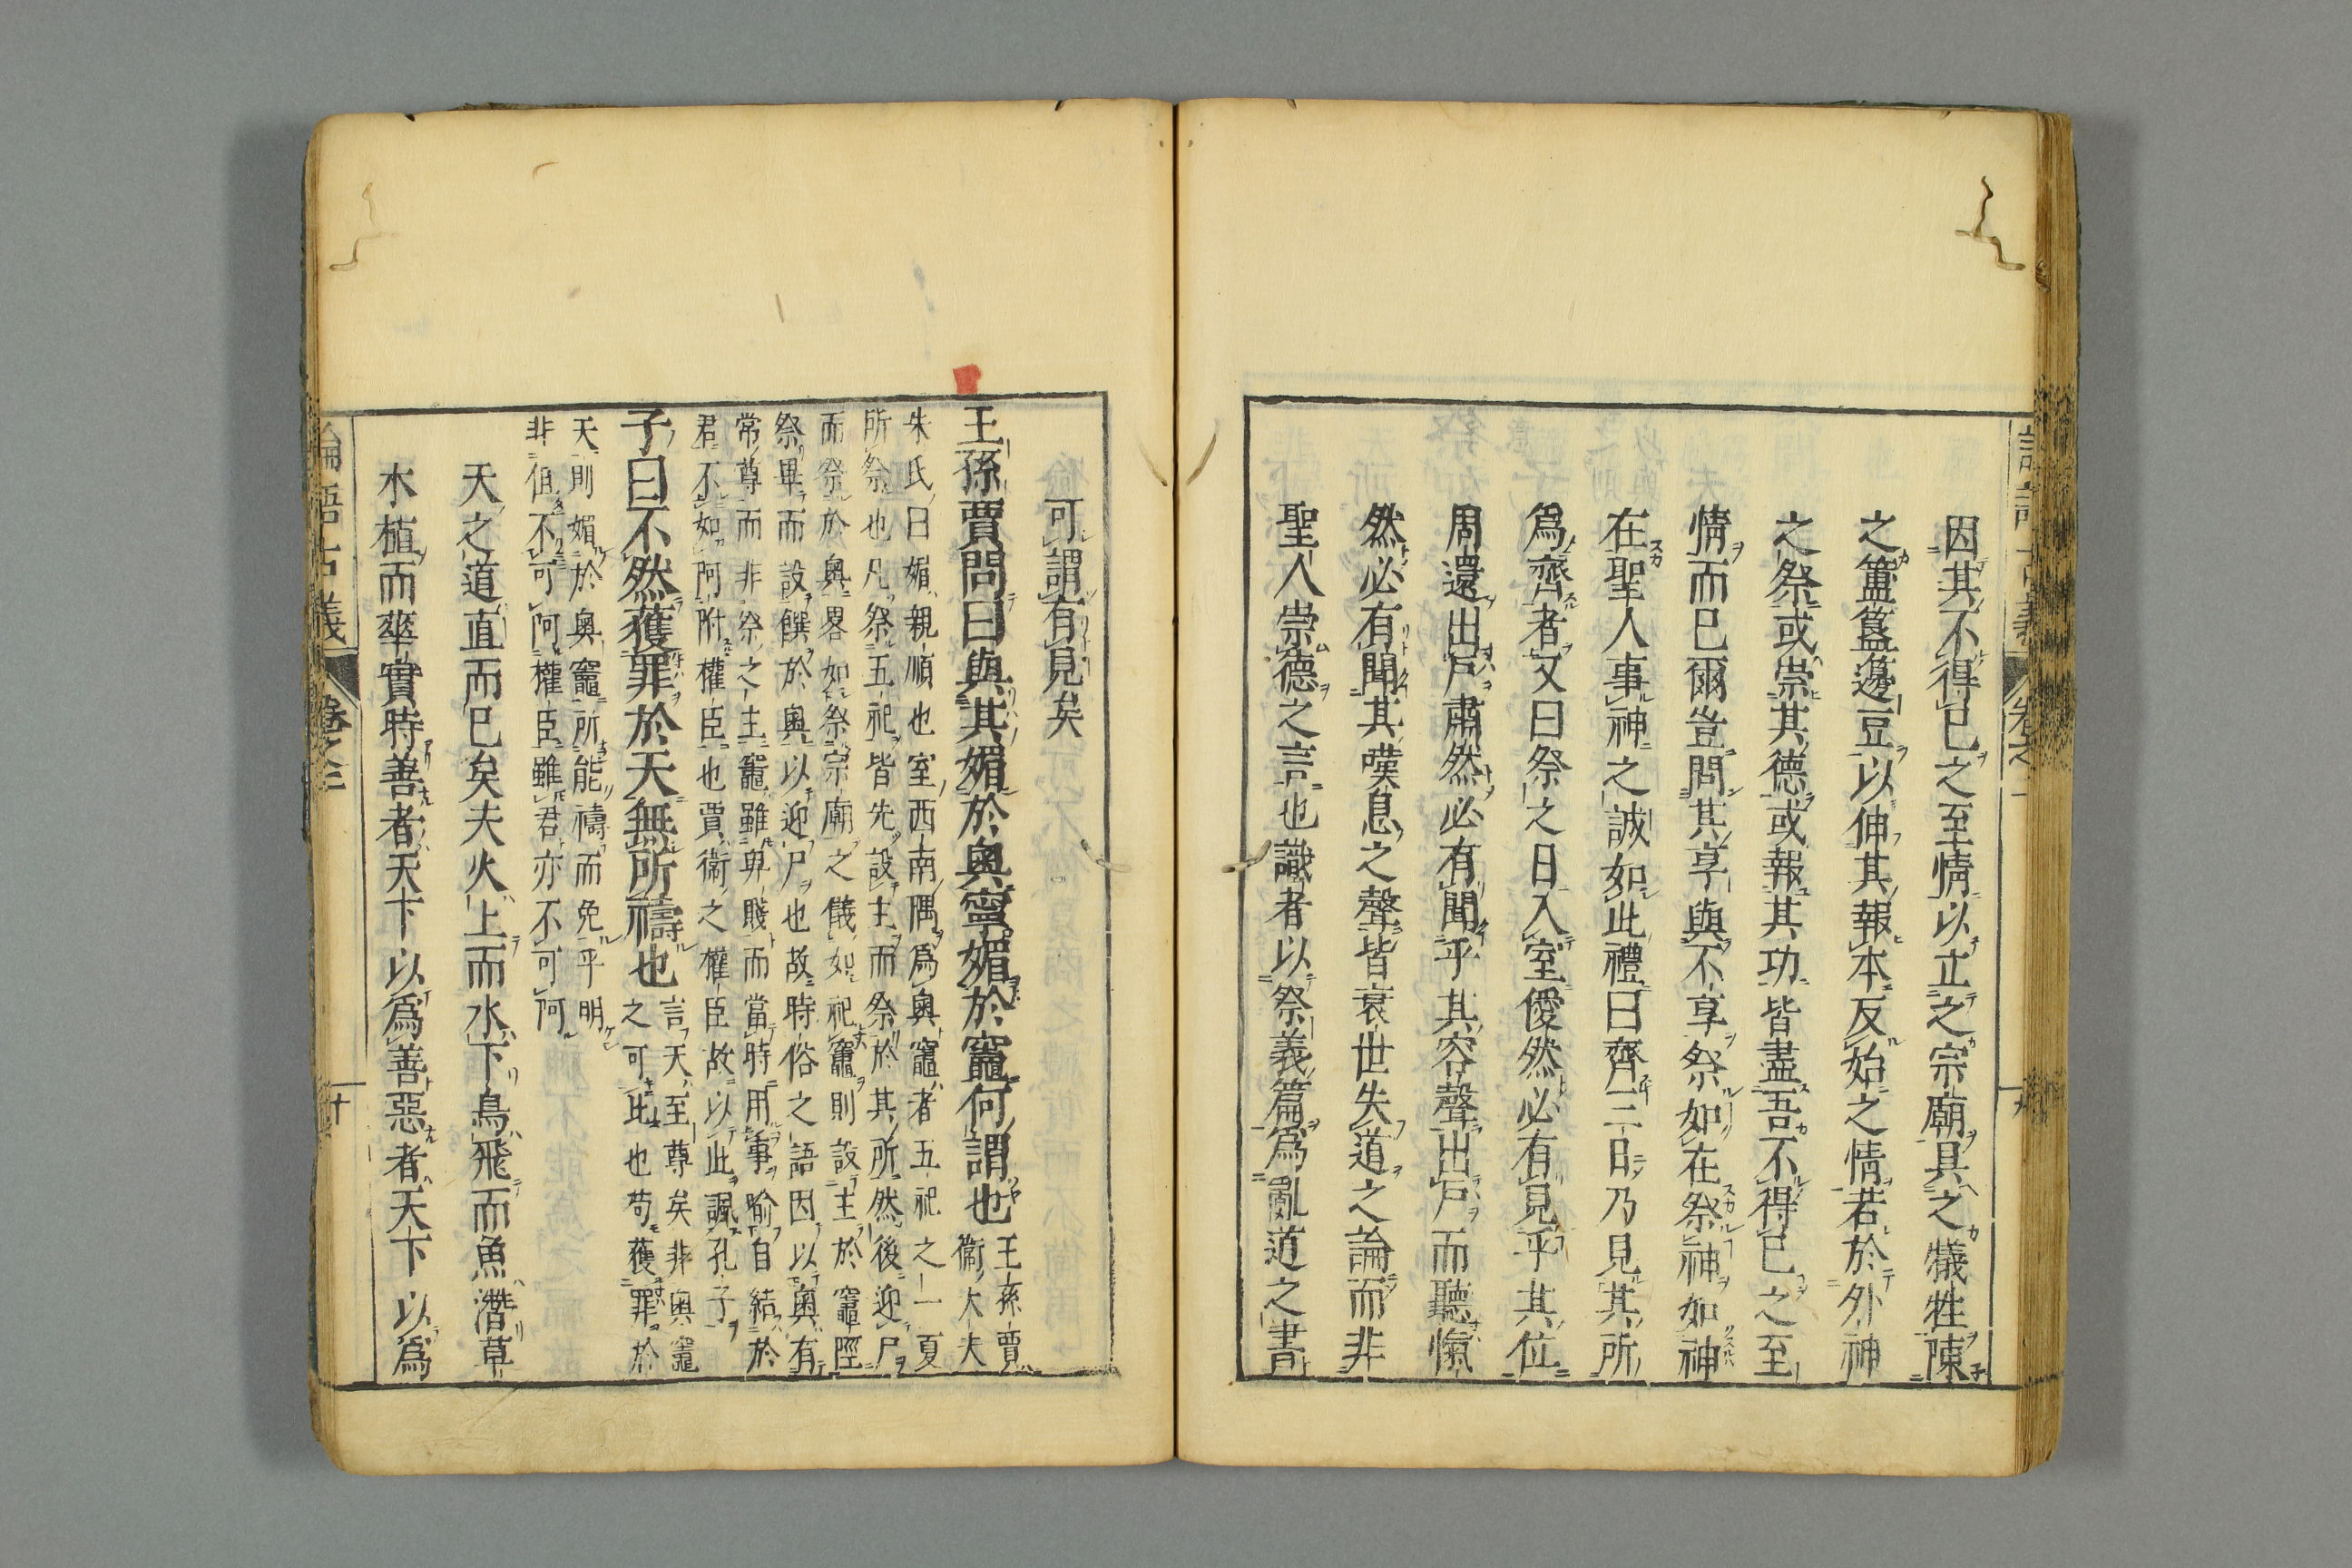 因其不得已之至情以立之宗廟具之犧牲陳
之簠簋籩豆以伸其報本反始之情若於外神
之祭或崇其德或報其功皆盡吾不得已之至
情而已爾豈問其享與不享祭如在祭神如神
在聖人事神之誠如此禮曰齊三日乃見其所
爲齊者又曰祭之日入室僾然必有見乎其位
周還出戶肅然必有聞乎其容聲出戶而聽愾
然必有聞其嘆息之聲皆衰世失道之論而非
聖人崇德之言也識者以祭義篇爲亂道之書
可謂有見矣
王孫賈問曰與其媚於奧寧媚於竈何謂也
王孫賈
衞大夫
朱氏曰媚親順也室西南隅爲奧竈者五祀之一夏
所祭也凡祭五祀皆先設主而祭於其所然後迎尸
而祭於奧畧如祭宗廟之儀如祀竈則設主於竈陘
祭畢而設饌於奧以迎尸也故時俗之語因以奧有
常尊而非祭之主竈雖卑賤而當時用事喻自結於
君不如阿附權臣也賈衞之權臣故以此諷孔子
子曰不然獲罪於天無所禱也
言天至尊矣非奧竈
之可此也苟獲罪於
天則媚於奧竈所能禱而免乎明
非但不可阿權臣雖君亦不可阿
天之道直而已矣夫火上而水下鳥飛而魚潛草
木植而華實時善者天下以爲善惡者天下以爲
論語古義
卷之二
十